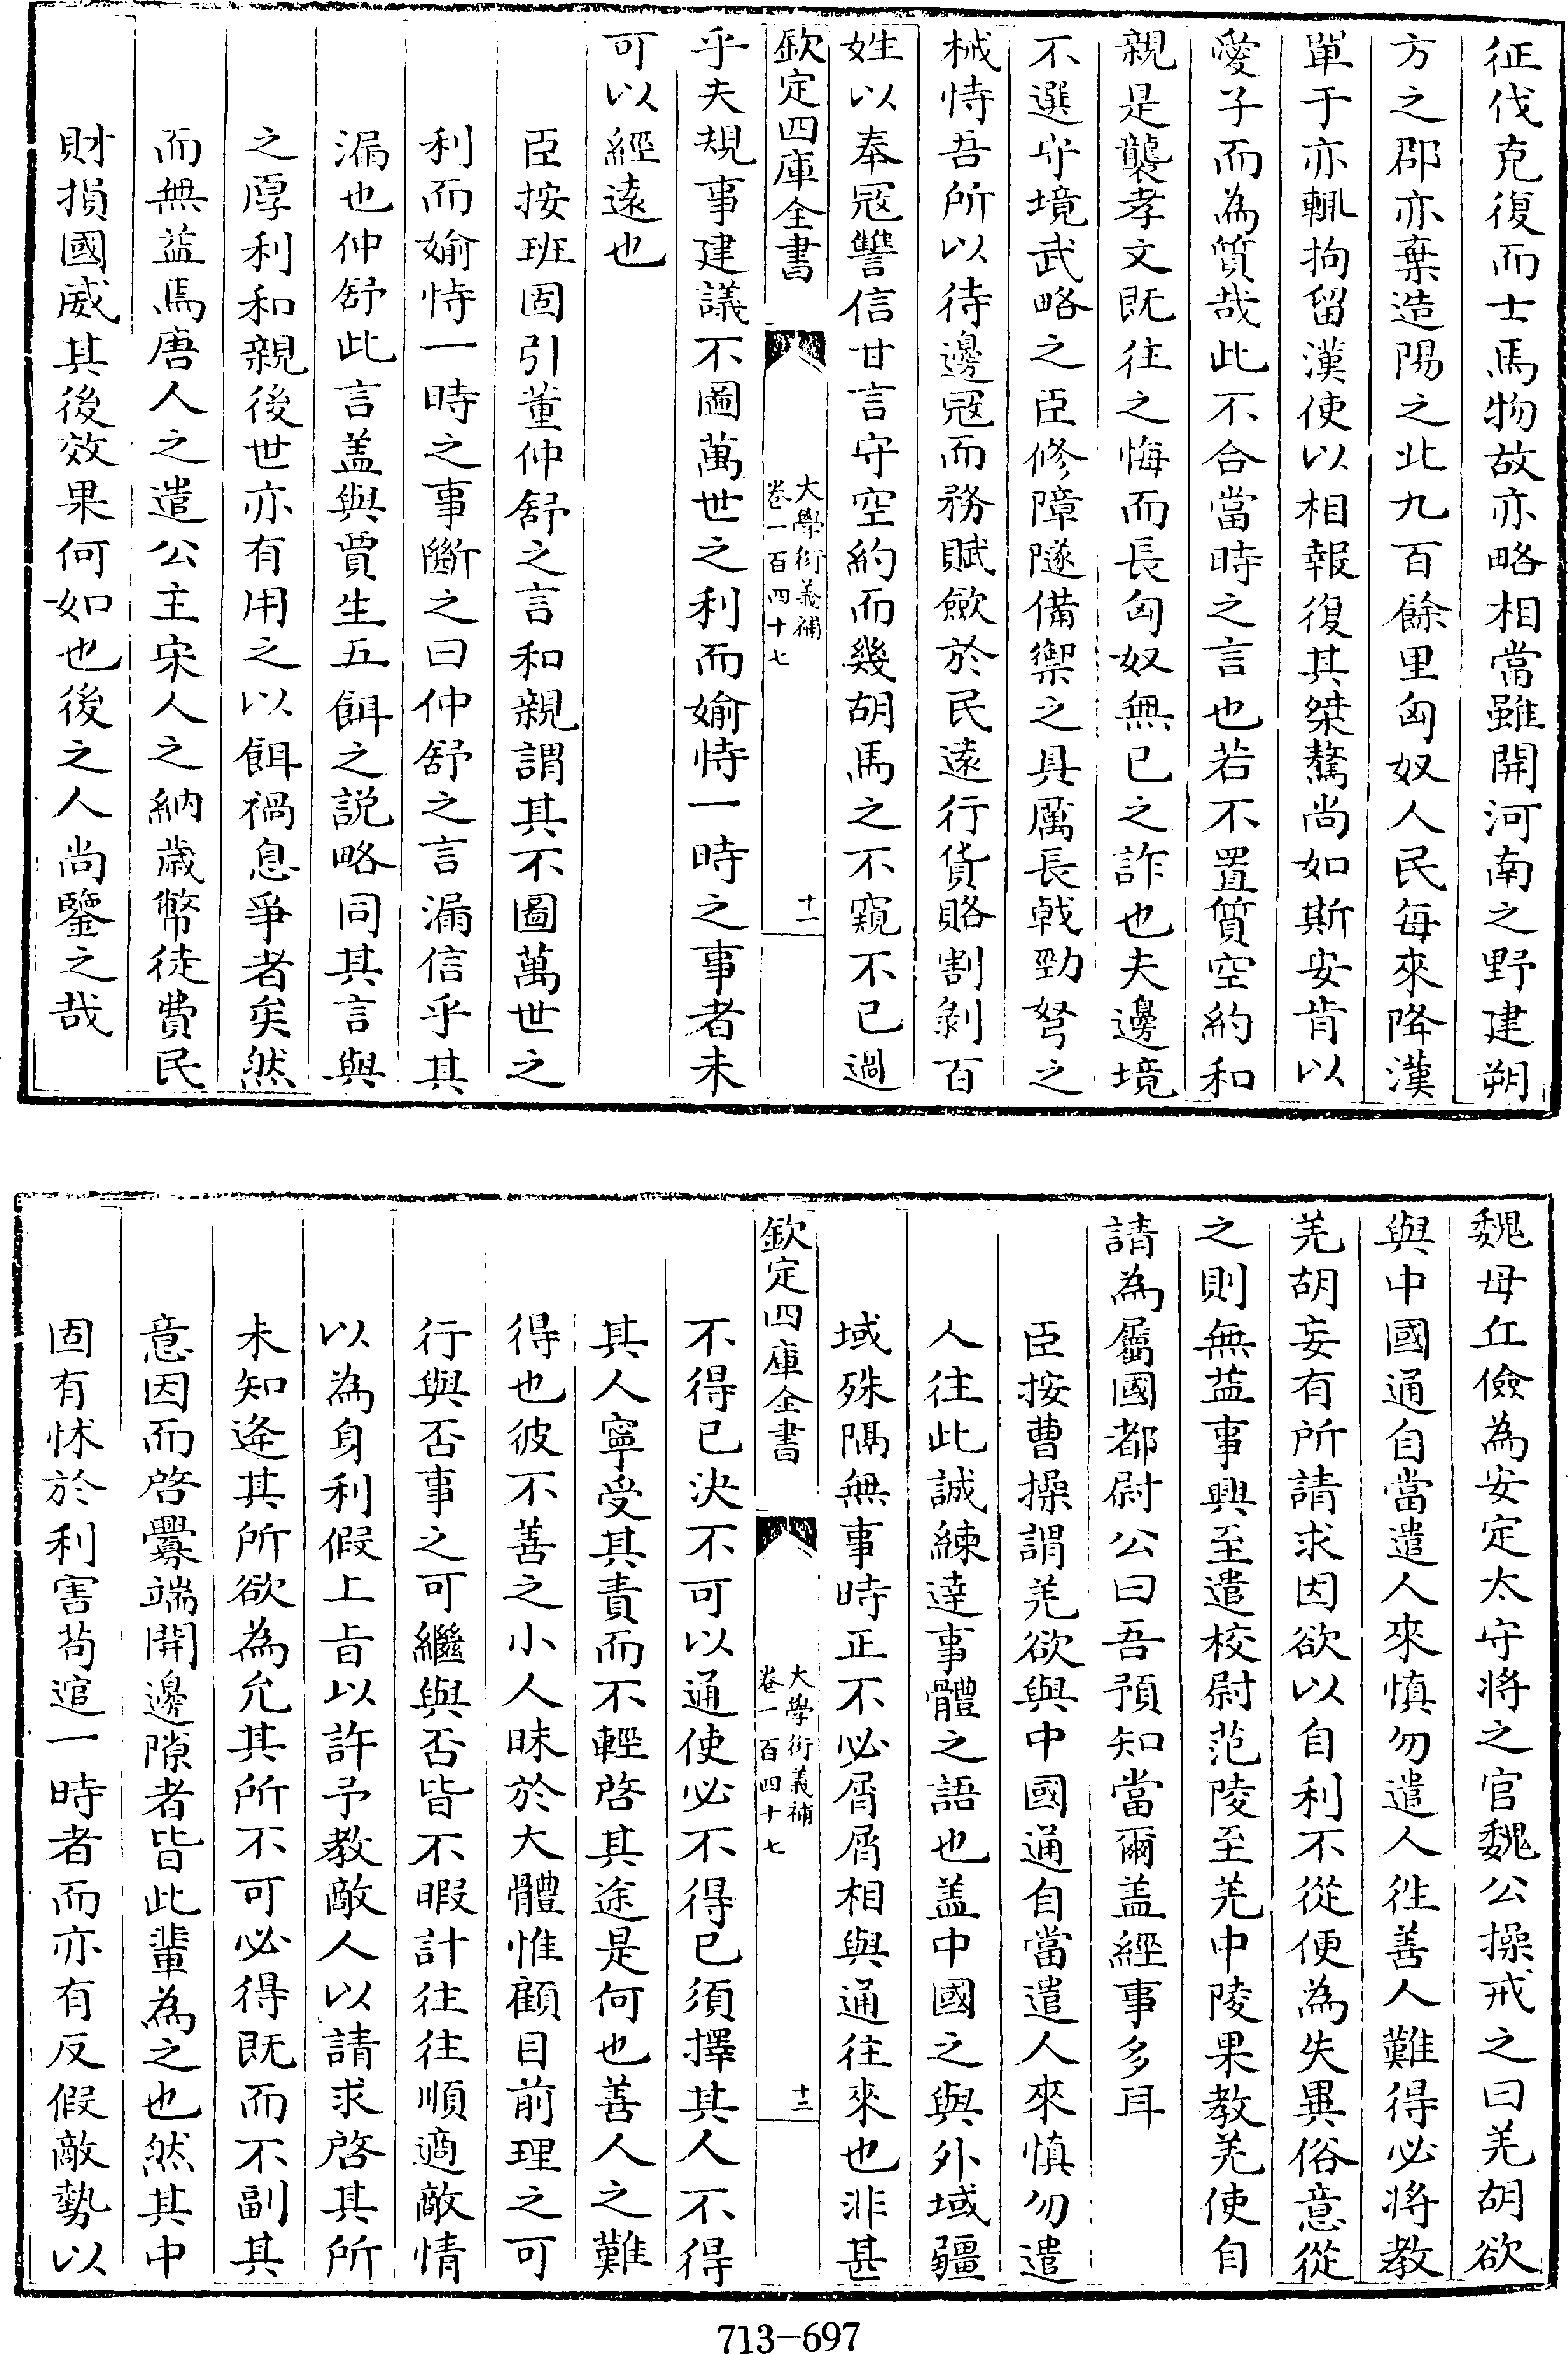 征伐克復而士馬物故亦略相當雖開河南之野建朔
方之郡亦棄造陽之北九百餘里匈奴人民每來降漢
單于亦輒拘留漢使以相報復其桀驁尚如斯安肯以
愛子而為質哉此不合當時之言也若不置質空約和
親是襲孝文既往之悔而長匈奴無已之詐也夫邊境
不選守境武略之臣修障隧備禦之具厲長戟勁弩之
械恃吾所以待邊冦而務賦歛於民遠行貨賂割剝百
姓以奉冦讐信甘言守空約而幾胡馬之不窺不已過
欽定四庫全書
大學衍義補
卷一百四十七
十一
乎夫規事建議不圖萬世之利而媮恃一時之事者未
可以經遠也
臣按班固引董仲舒之言和親謂其不圖萬世之
利而媮恃一時之事斷之曰仲舒之言漏信乎其
漏也仲舒此言盖與賈生五餌之説略同其言與
之厚利和親後世亦有用之以餌禍息爭者矣然
而無益焉唐人之遣公主宋人之納歳幣徒費民
財損國威其後效果何如也後之人尚鑒之哉
魏母丘儉為安定太守將之官魏公操戒之曰羌胡欲
與中國通自當遣人來慎勿遣人徃善人難得必將教
羌胡妄有所請求因欲以自利不從便為失異俗意從
之則無益事興至遣校尉范陵至羌中陵果教羌使自
請為屬國都尉公曰吾預知當爾盖經事多耳
臣按曹操謂羌欲與中國通自當遣人來慎勿遣
人往此誠練達事體之語也盖中國之與外域疆
域殊隔無事時正不必屑屑相與通往來也非甚
欽定四庫全書
大學衍義補
卷一百四十七
十二
不得已決不可以通使必不得已須擇其人不得
其人寧受其責而不輕啓其途是何也善人之難
得也彼不善之小人昧於大體惟顧目前理之可
行與否事之可繼與否皆不暇計往往順適敵情
以為身利假上㫖以許予教敵人以請求啓其所
未知逢其所欲為允其所不可必得既而不副其
意因而啓釁端開邊隙者皆此輩為之也然其中
固有怵於利害苟逭一時者而亦有反假敵勢以
713-697